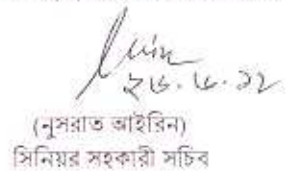 ২৬.৬.১২
(নুসরাত আইরিন)
সিনিয়র সহকারী সচিব